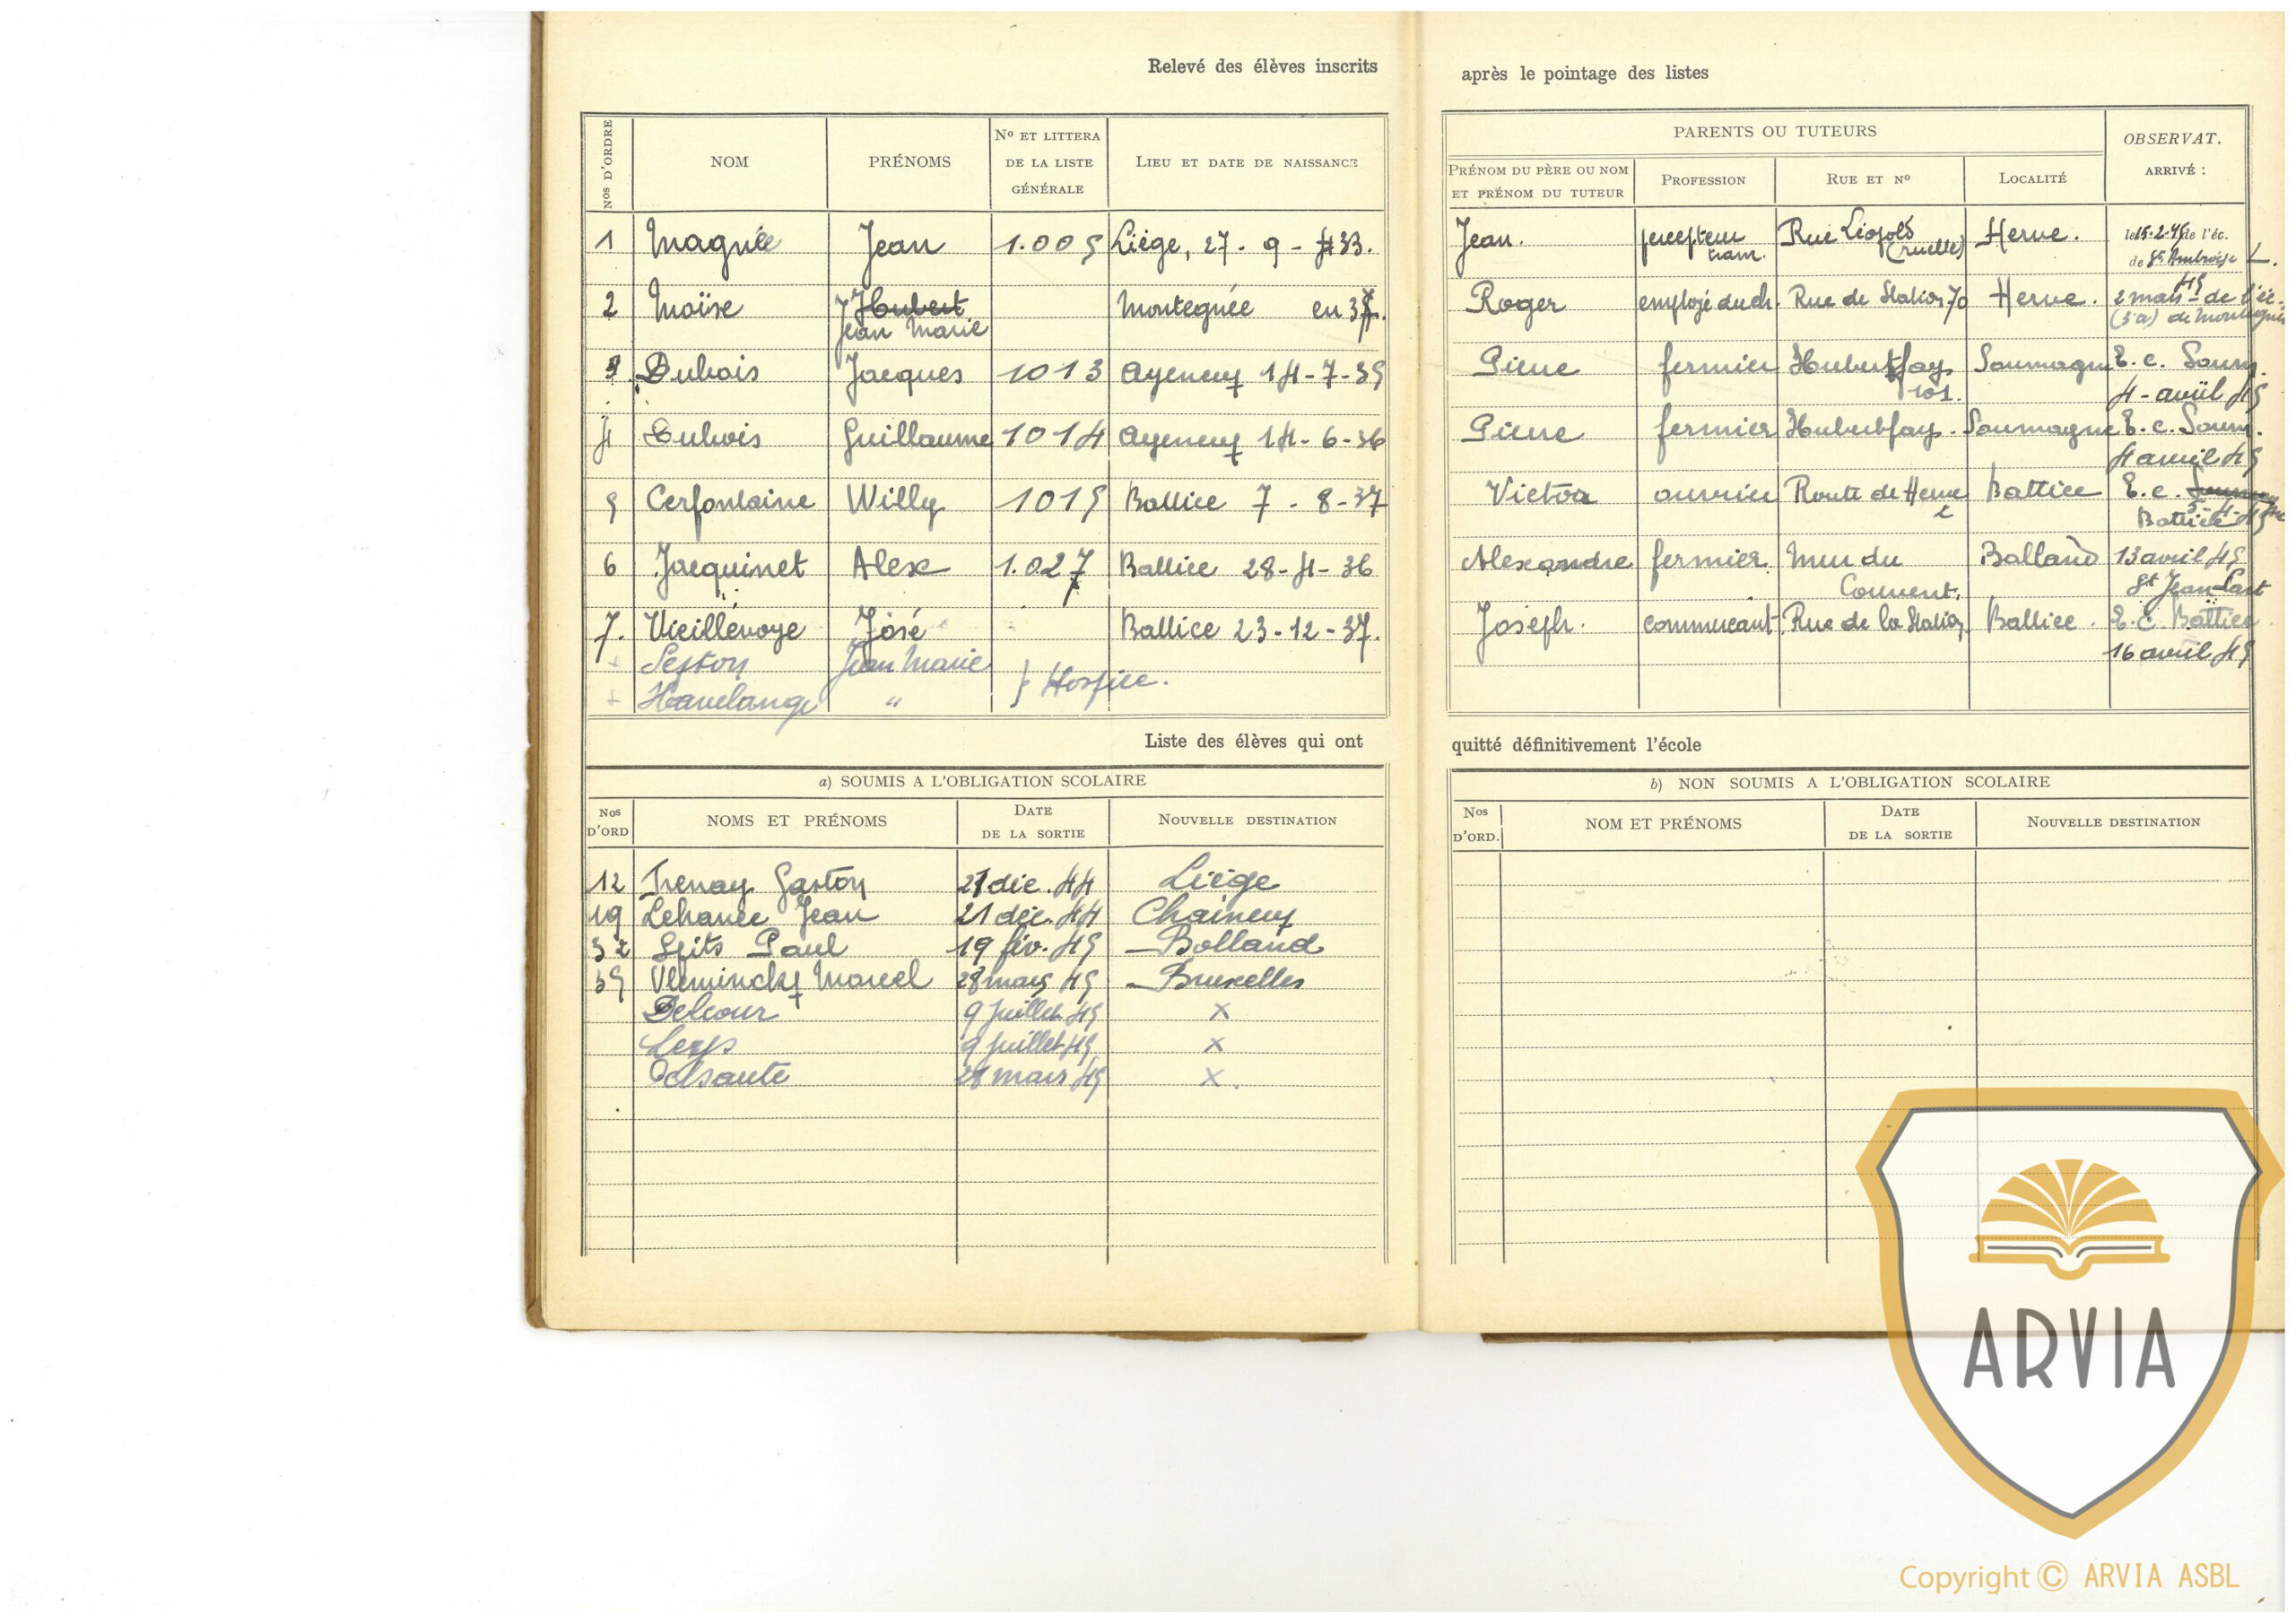 Relevé des élèves inscrits après le pointage des listes
Nos D'ORDRE NOM PRÉNOMS No ET LITTERA DE LA LISTE GÉNÉRALE LIEU ET DATE DE NAISSANCE
PARENTS OU TUTEURS
PRÉNOM DU PÈRE OU NOM ET PRÉNOM DU TUTEUR PROFESSION RUE ET No LOCALITÉ OBSERVAT. ARRIVÉ :
1 Magnée Jean 1.005 Liège, 27 - 9 - 33. Jean. percepteur tram. Rue Léopold (ruelle) Herve. le 15-2-45 de l'éc. de St Ambroise L.
2 Moïse Hubert Jean Marie Montegnée en 35. Roger employé du ch. Rue de Station 70 Herve. 2 mars 45 - de l'éc. (3e a) de Montegnée
3 Dubois Jacques 1013 Ayeneux 14-7-35 Pierre fermier Hubertfays 101. Soumagne E.c. Soum. 4 - avril 45
4 Dubois Guillaume 1014 Ayeneux 14-6-36 Pierre fermier Hubertfays. Soumagne E.c. Soum. 4 avril 45
5 Cerfontaine Willy 1015 Battice 7 - 8-37 Victor ouvrier Route de Herve Battice E.c. Battice 5-4-45
6 Jacquinet Alex 1.027 Battice 28-4-36 Alexandre fermier Mur du Couvent. Bolland 13 avril 45 St Jean-Sart
7. Vieillevoye José Battice 23-12-37. Joseph. commerçant Rue de la Station Battice. E.C. Battice 16 avril 45
+ Lejton Jean Marie
+ Havelange " } Hospice.
Liste des élèves qui ont quitté définitivement l'école
a) SOUMIS A L'OBLIGATION SCOLAIRE
Nos D'ORD NOMS ET PRÉNOMS DATE DE LA SORTIE NOUVELLE DESTINATION
12 Trenay Gaston 21 déc. 44 Liège
19 Lehance Jean 21 déc. 44 Chaineux
32 Spits Paul 19 fév. 45 Bolland
35 Vleminckx Marcel 28 mars 45 Bruxelles
Delcour 9 juillet 45 x
Leys 9 juillet 45 x
Delsaute 28 mars 45 x.
b) NON SOUMIS A L'OBLIGATION SCOLAIRE
Nos D'ORD. NOM ET PRÉNOMS DATE DE LA SORTIE NOUVELLE DESTINATION
ARVIA
Copyright © ARVIA ASBL